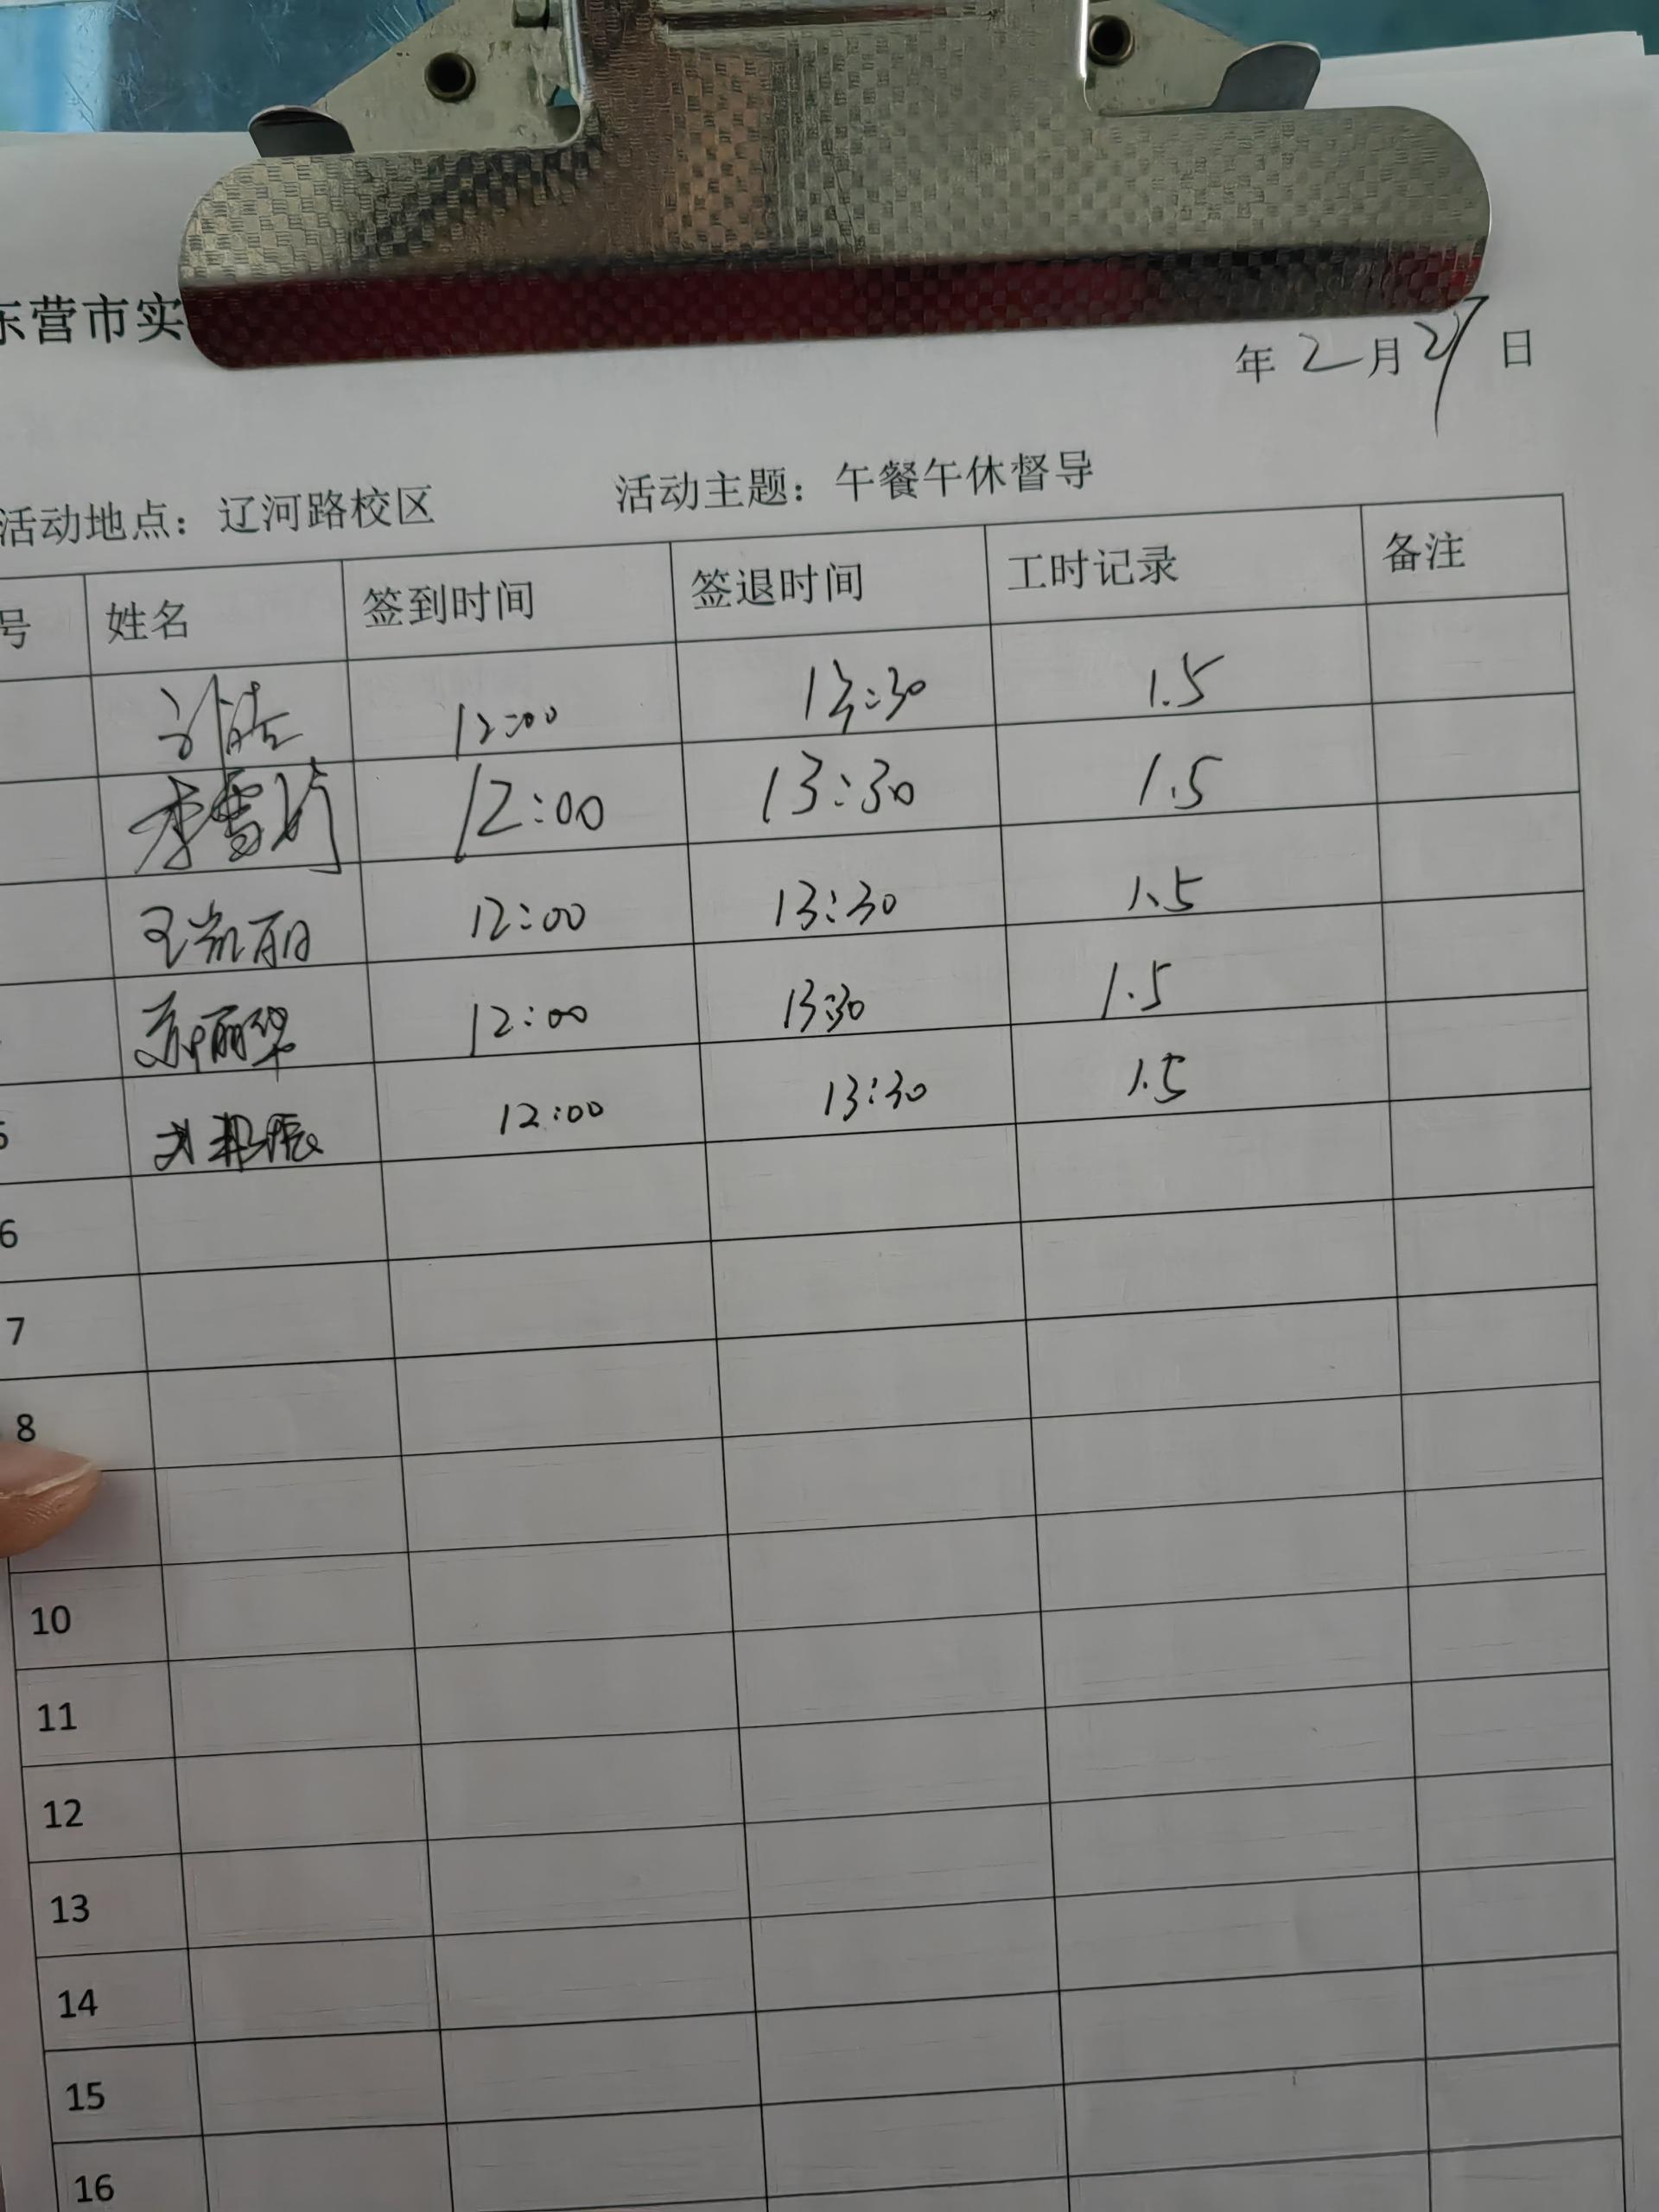 东营市实
年 2 月 27 日
活动地点：辽河路校区 活动主题：午餐午休督导
号 姓名 签到时间 签退时间 工时记录 备注
12:00 13:30 1.5
李雪 12:00 13:30 1.5
王凯丽 12:00 13:30 1.5
苏丽华 12:00 13:30 1.5
5 12:00 13:30 1.5
6
7
8
10
11
12
13
14
15
16